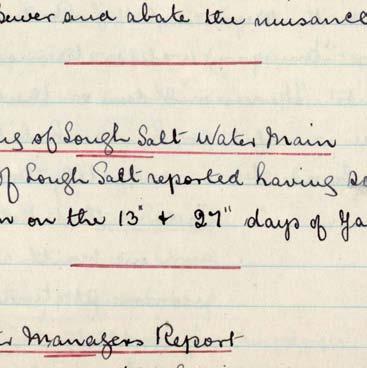 Sewer and abate the nuisance
of Lough Salt Water Main
of Lough Salt reported having
on the 13" & 27" days of
Managers Report